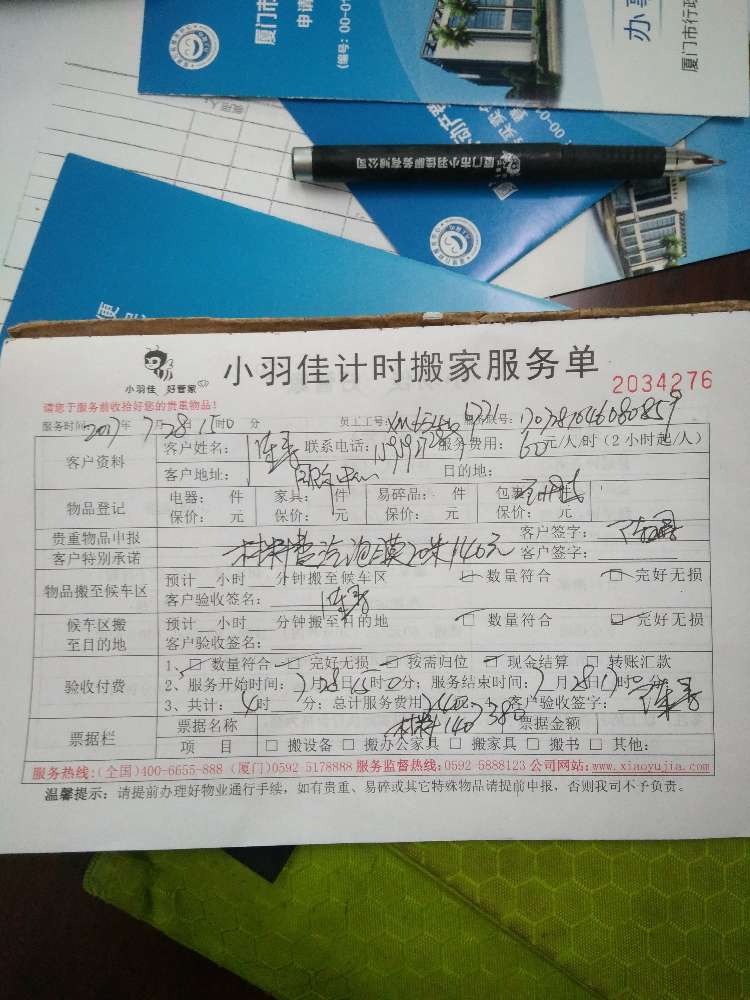 厦门市
申请
(编号：00-0
办事
厦门市行政
00-00
使用人
便
厦门市小羽佳服务有限公司
小羽佳 好管家
小羽佳计时搬家服务单
2034276
请您于服务前收拾好您的贵重物品!
服务时间：2017年7月28日15时0分 员工工号：
客户资料
客户姓名： 联系电话： 服务费用：60元/人/时（2小时起/人）
客户地址： 目的地：
物品登记
电器： 件 家具： 件 易碎品： 件 包裹： 件
保价： 元 保价： 元 保价： 元 保价： 元
贵重物品申报 客户签字：
客户特别承诺 材料费 气泡膜2米140元 客户签字：
物品搬至候车区
预计__小时__分钟搬至候车区 数量符合 完好无损
客户验收签名：
候车区搬至目的地
预计__小时__分钟搬至目的地 数量符合 完好无损
客户验收签名：
验收付费
1、数量符合 完好无损 按需归位 现金结算 转账汇款
2、服务开始时间：7月28日15时0分；服务结束时间：7月28日17时0分
3、共计：4时__分；总计服务费用 240 材料140 380 客户验收签字：
票据栏
票据名称 票据金额
项 目 □ 搬设备 □ 搬办公家具 □ 搬家具 □ 搬书 □ 其他：
服务热线:(全国)400-6655-888 (厦门)0592-5178888 服务监督热线:0592-5888123 公司网站:www.xiaoyujia.com
温馨提示：请提前办理好物业通行手续，如有贵重、易碎或其它特殊物品请提前申报，否则我司不予负责。